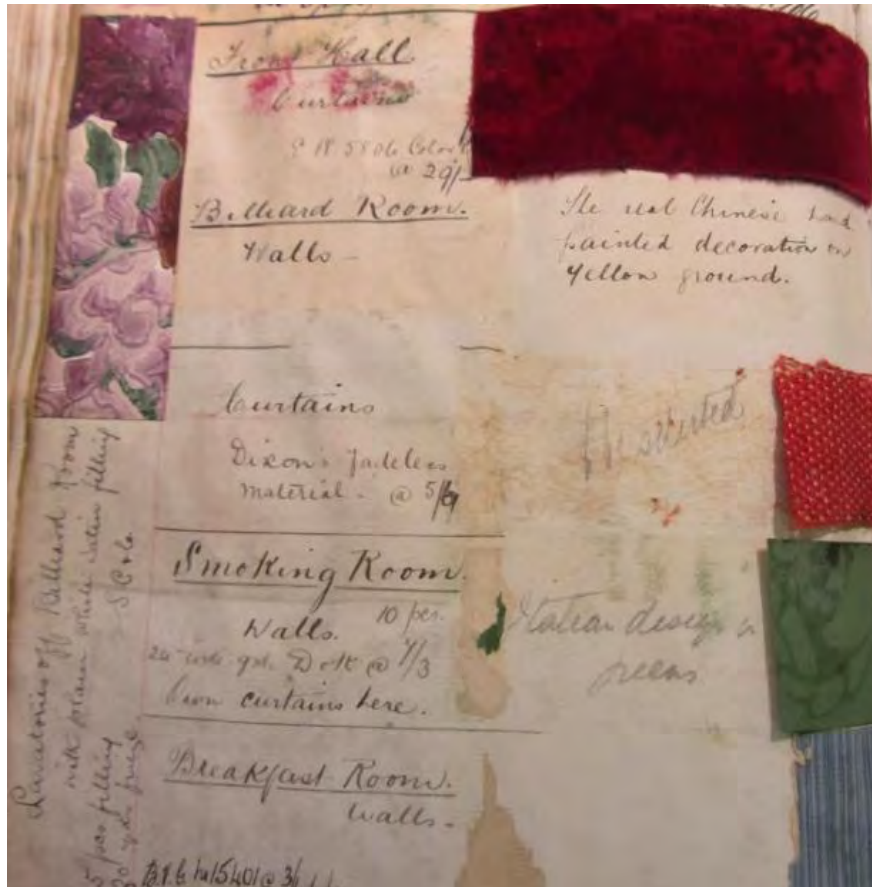 Front Hall
Curtains
5806 Color
@ 29/-
Billiard Room.
Walls -
The real Chinese hand
painted decoration on
yellow ground.
Curtains
Dixon's fadeless
material. @ 5/
Smoking Room.
Walls. 10 pcs.
@ 1/3
Own curtains here.
design in
greens
Breakfast Room.
Walls -
@ 3/
Lavatories off Billiard Room
with plain white satin filling
5 pcs filling
30 yds frieze